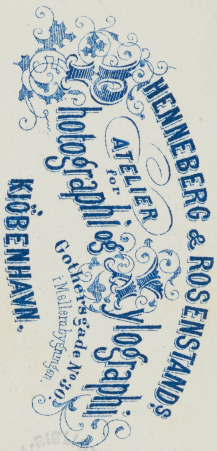 HENNEBERG & ROSENSTAND,S
ATELIER
for
Photographi og Xylographi.
Gothersgade No 30.
i Mellembygningen.
KIØBENHAVN.